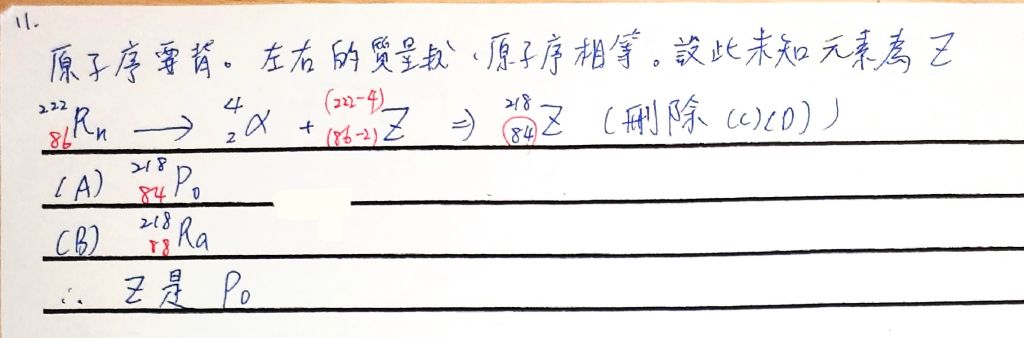 11.
原子序要背。左右的質量數、原子序相等。設此未知元素為 Z
²²²₈₆Rn → ⁴₂α + ⁽²²²⁻⁴⁾₍₈₆₋₂₎Z ⇒ ²¹⁸₈₄Z (刪除 (C)(D))
(A) ²¹⁸₈₄Po
(B) ²¹⁸₈₈Ra
∴ Z是 Po